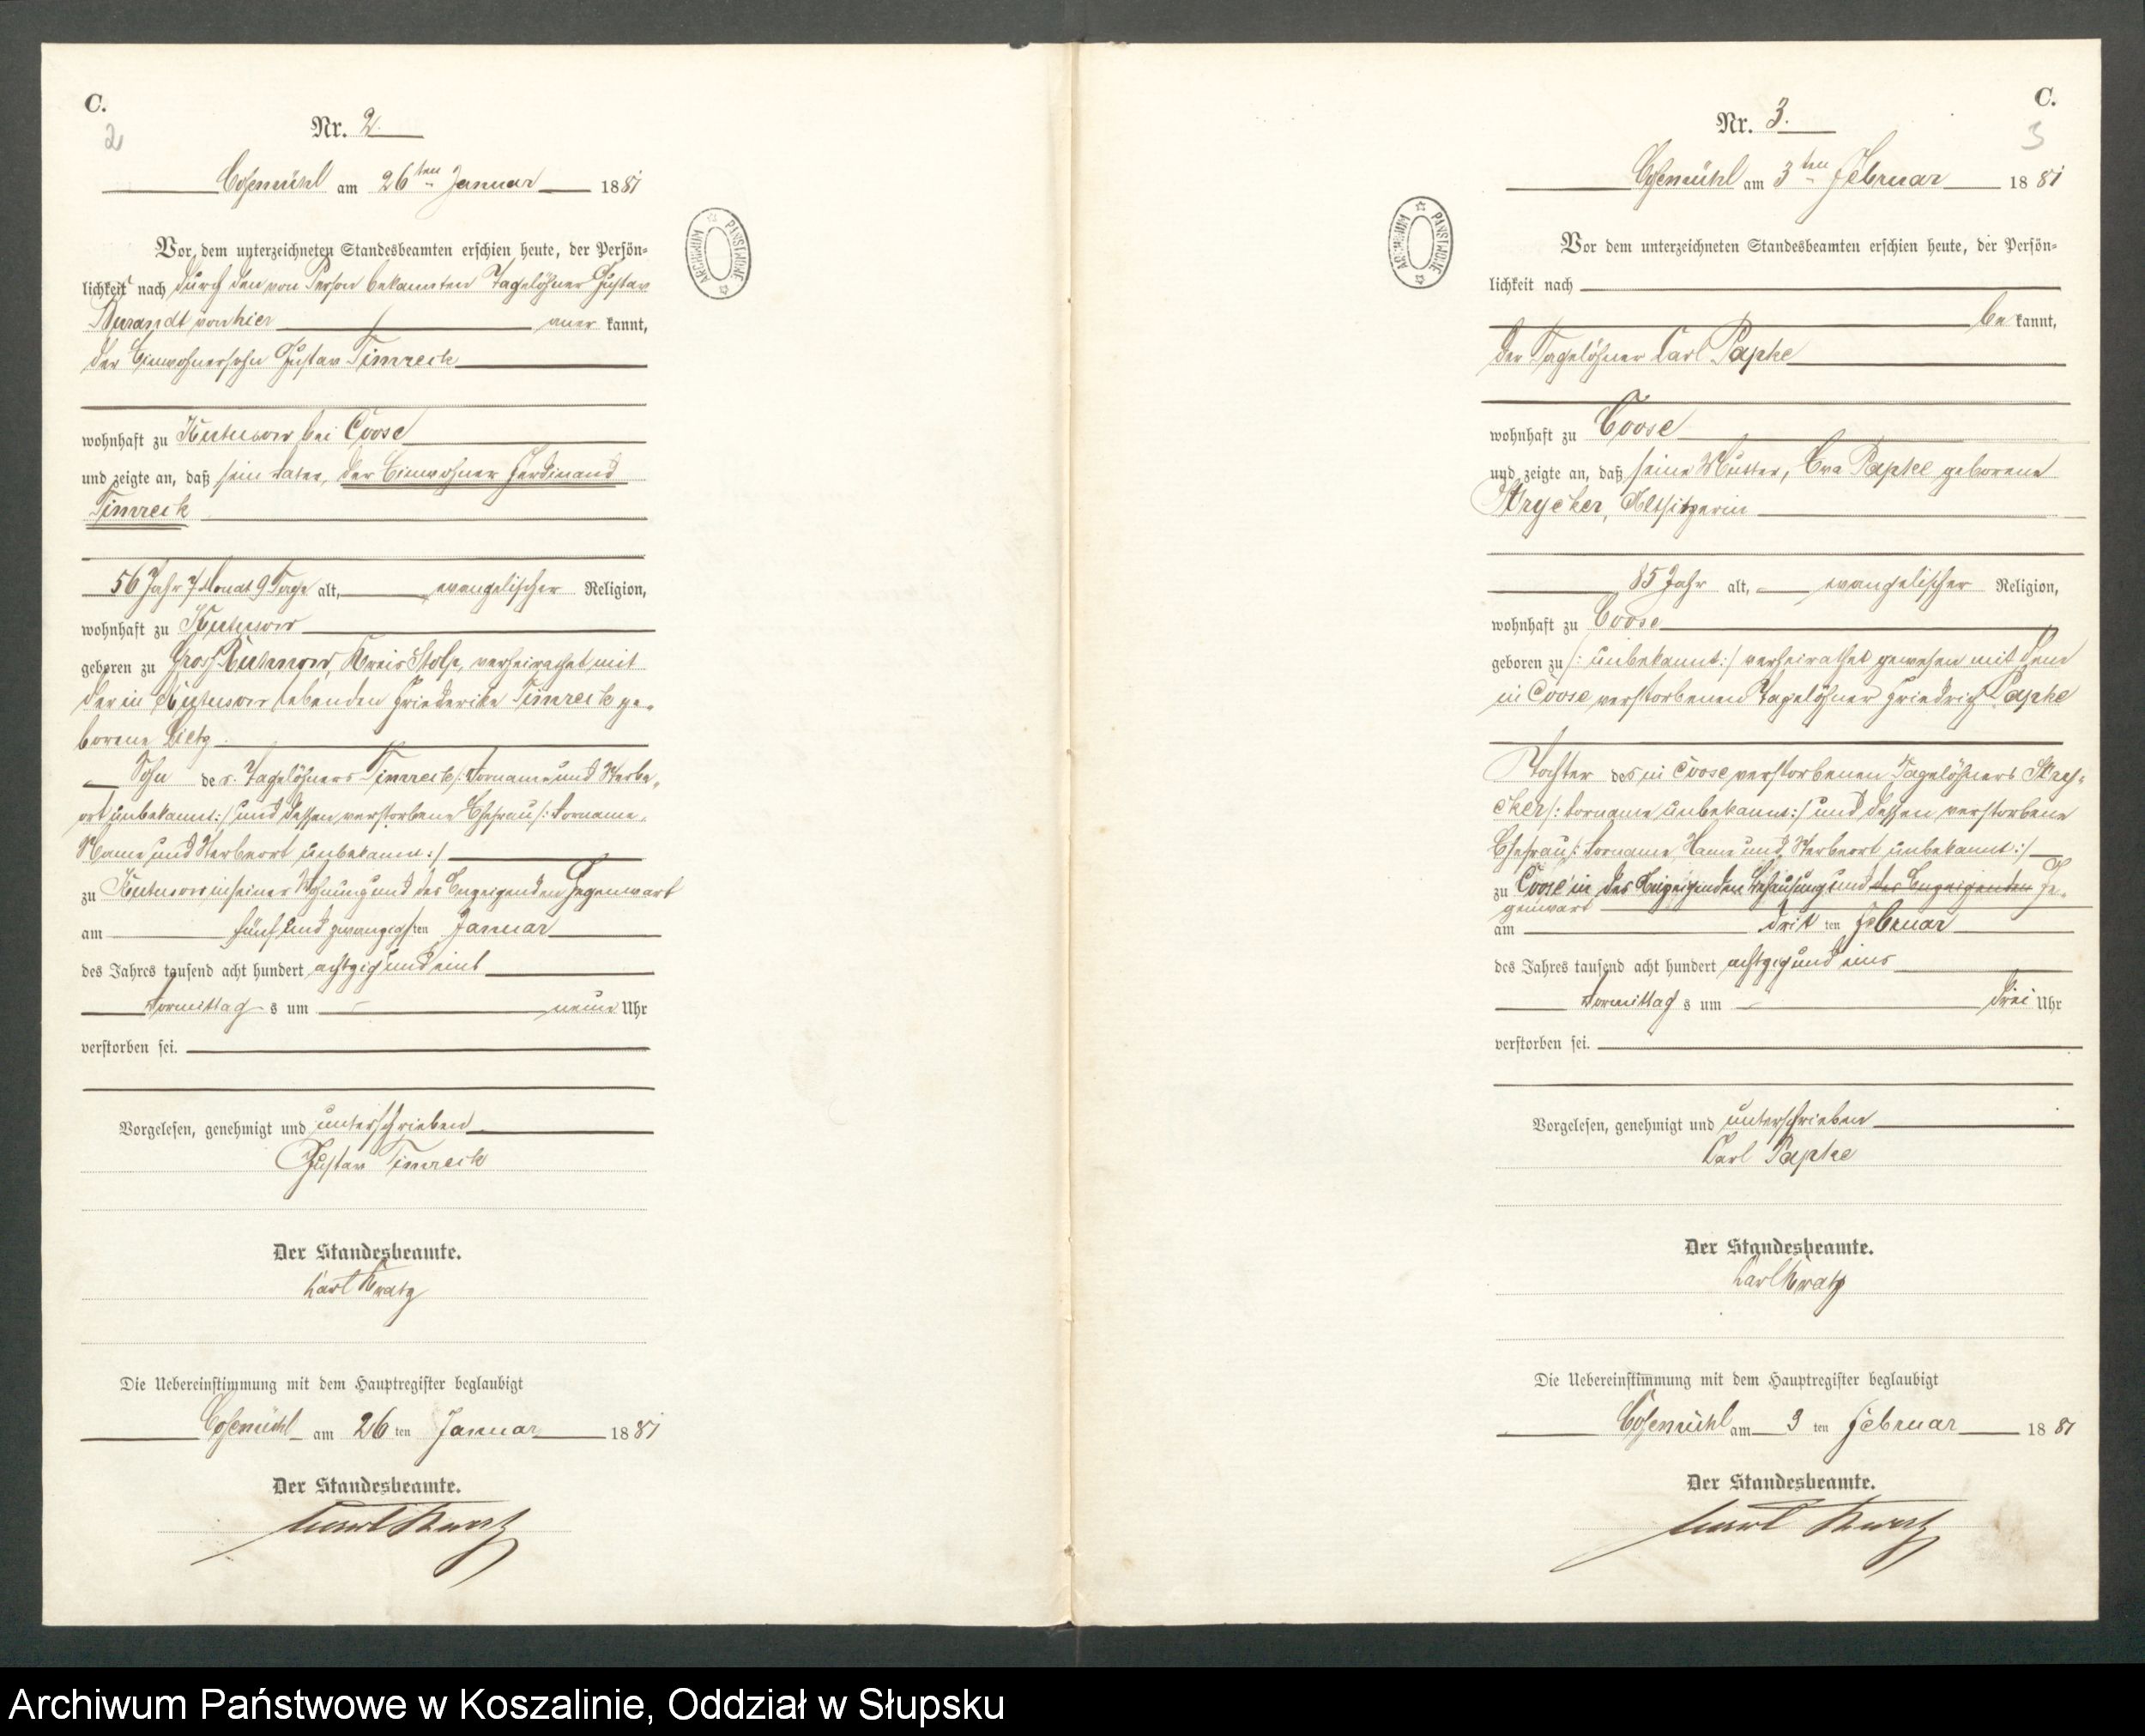 C.
2
Nr. 2.
Cosemühl am 26ten Januar 1881
Vor dem unterzeichneten Standesbeamten erschien heute, der Persön-
lichkeit nach durch den von Person bekannten Tagelöhner Gustav
von hier aner kannt,
der Einwohnersohn Gustav Timreck
wohnhaft zu bei Coose
und zeigte an, daß sein Vater, der Einwohner Ferdinand
Timreck
56 Jahr 7 Monat 9 Tage alt, evangelischer Religion,
wohnhaft zu
geboren zu Gross Kreis Stolp, verheirathet mit
der in lebenden Friederike Timreck ge-
borene Dietz
Sohn des Tagelöhners Timreck /: Vorname und Sterbe-
ort unbekannt :/ und dessen verstorbene Ehefrau /: Vorname,
Name und Sterbeort unbekannt :/
zu in seiner Wohnung und des Anzeigenden Gegenwart
am fünf und zwanzigsten Januar
des Jahres tausend acht hundert achtzig und eins
Vormittag s um neun Uhr
verstorben sei.
Vorgelesen, genehmigt und unterschrieben
Gustav Timreck
Der Standesbeamte.
Carl Kratz
Die Uebereinstimmung mit dem Hauptregister beglaubigt
Cosemühl am 26 ten Januar 1881
Der Standesbeamte.
Carl Kratz
C.
3
Nr. 3.
Cosemühl am 3ten Februar 1881
Vor dem unterzeichneten Standesbeamten erschien heute, der Persön-
lichkeit nach
be kannt,
der Tagelöhner Carl Papke
wohnhaft zu Coose
und zeigte an, daß seine Mutter, Eva Papke geborene
Strycker, Altsitzerin
85 Jahr alt, evangelischer Religion,
wohnhaft zu Coose
geboren zu /: unbekannt :/ verheirathet gewesen mit dem
in Coose verstorbenen Tagelöhner Friedrich Papke
Tochter des in Coose verstorbenen Tagelöhners Stry-
cker /: Vorname unbekannt :/ und dessen verstorbene
Ehefrau /: Vorname, Name und Sterbeort unbekannt :/
zu Coose in des Anzeigenden Behausung und des Anzeigenden Ge-
genwart
am drit ten Februar
des Jahres tausend acht hundert achtzig und eins
Vormittag s um drei Uhr
verstorben sei.
Vorgelesen, genehmigt und unterschrieben
Carl Papke
Der Standesbeamte.
Carl Kratz
Die Uebereinstimmung mit dem Hauptregister beglaubigt
Cosemühl am 3 ten Februar 1881
Der Standesbeamte.
Carl Kratz
ARCHIWUM PAŃSTWOWE
ARCHIWUM PAŃSTWOWE
Archiwum Państwowe w Koszalinie, Oddział w Słupsku